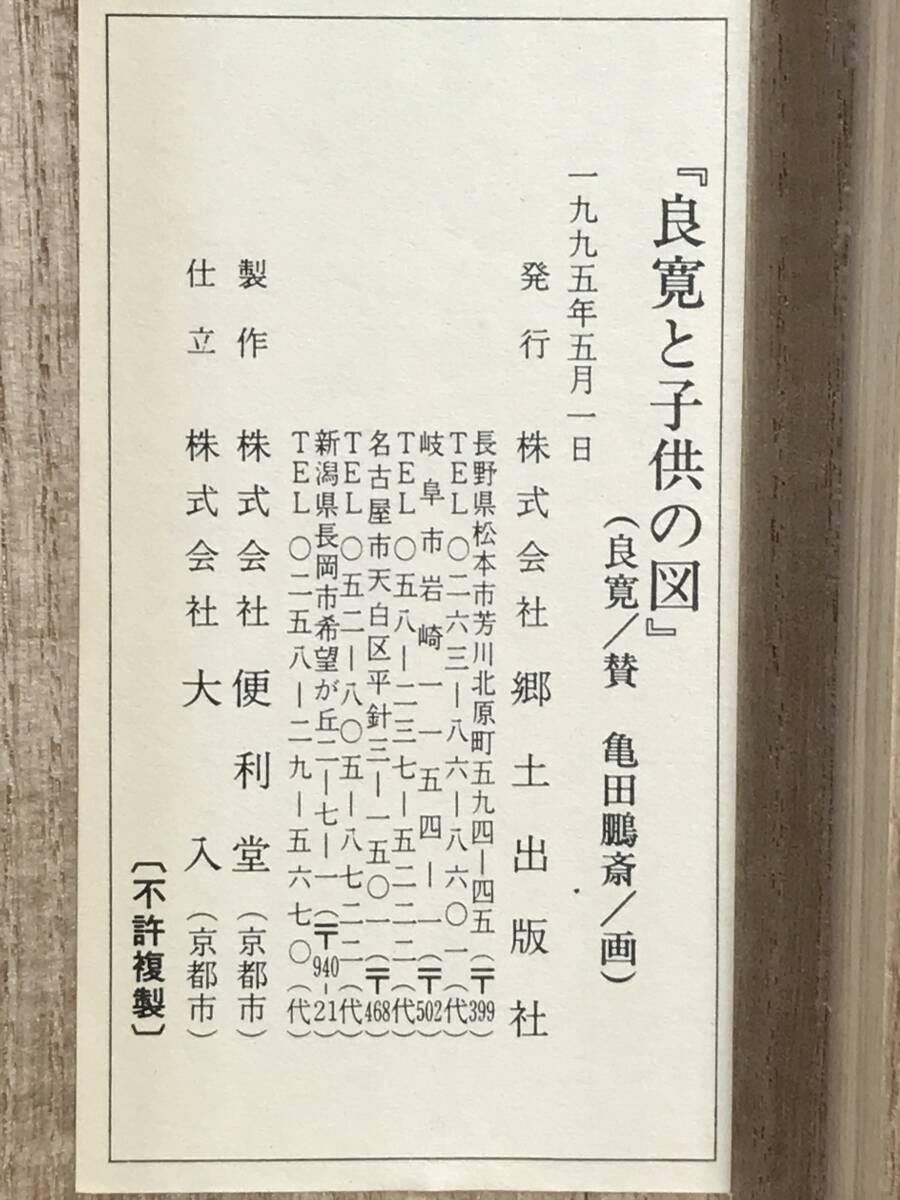 『良寛と子供の図』
（良寛／賛　亀田鵬斎／画）
一九九五年五月一日
発行　株式会社　郷土出版社
長野県松本市芳川北原町五九四―四五（〒399）
TEL〇二六三―八六―八六〇一（代）
岐阜市岩崎一一五四―一（〒502）
TEL〇五八―二三七―五二二二（代）
名古屋市天白区平針三―一五〇一（〒468）
TEL〇五二―八〇五―八七二二（代）
新潟県長岡市希望が丘二―七―一（〒940-21）
TEL〇二五八―二九―五六七〇（代）
製作　株式会社　便利堂（京都市）
仕立　株式会社　大入（京都市）
〔不許複製〕